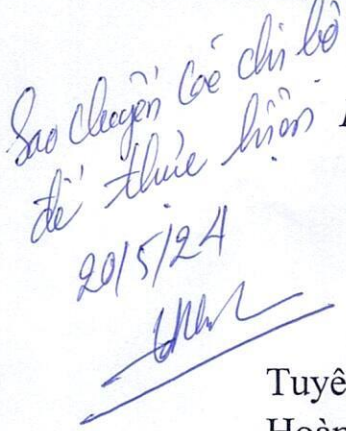 Sao chuyển các chi bộ
để thực hiện
20/5/24
Tuyê
Hoàn